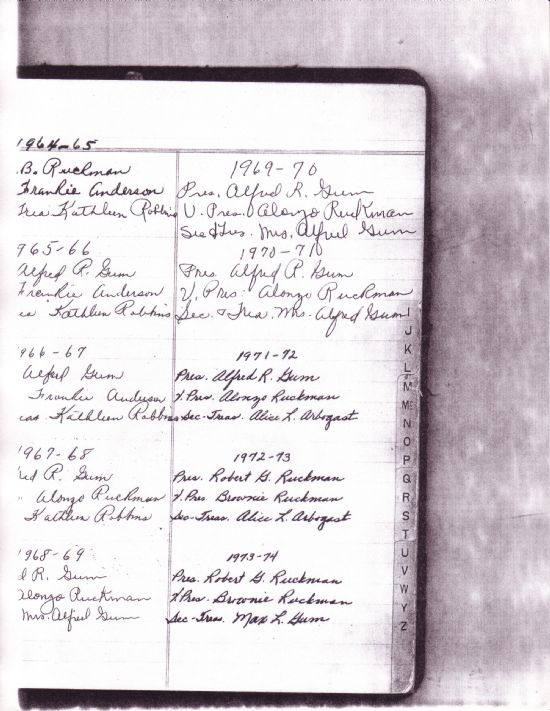 1964-65
B. Ruckman
Frankie Anderson
Trea Kathleen Robbins
965-66
Alfred R. Gum
Frankie Anderson
ea Kathleen Robbins
966-67
Alfred Gum
Frankie Anderson
eas Kathleen Robbins
1967-68
red R. Gum
" Alonzo Ruckman
Kathleen Robbins
1968-69
d R. Gum
Alonzo Ruckman
Mrs. Alfred Gum
1969-70
Pres. Alfred R. Gum
V. Pres. Alonzo Ruckman
Sec & Tres. Mrs. Alfred Gum
1970-71
Pres. Alfred R. Gum
V. Pres. Alonzo Ruckman
Sec. & Trea. Mrs. Alfred Gum
1971-72
Pres. Alfred R. Gum
V. Pres. Alonzo Ruckman
Sec-Treas. Alice L. Arbogast
1972-73
Pres. Robert G. Ruckman
V. Pres. Brownie Ruckman
Sec-Treas. Alice L. Arbogast
1973-74
Pres. Robert G. Ruckman
V. Pres. Brownie Ruckman
Sec-Treas. Max L. Gum
I
J
K
L
M
Mc
N
O
P
Q
R
S
T
U
V
W
Y
Z